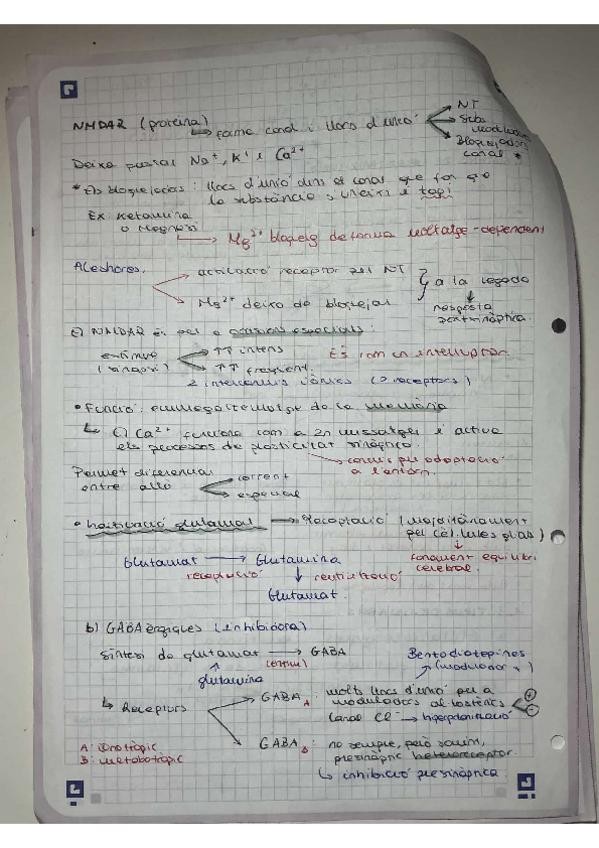 NMDAR (proteina) → forma canal i llocs d'unió
NT
Subs
moduladora
Bloquejadors
canal *
Deixa passar Na+, K+ i Ca2+
* Els bloquejadors: llocs d'unió dins el canal que fan que
la substància s'uneixi i tapi
Ex Ketamina
o Magnesi
→ Mg2+ bloqueig de forma voltatge-dependent
Aleshores,
activació receptor pel NT
Mg2+ deixa de bloquejar
} a la vegada
↓
resposta
postsinàptica.
El NMDAR és per a ocasions especials:
estímul
↑↑ intens
↑↑ freqüent.
És com un interruptor.
2 intercanvis iònics (2 receptors)
• Funció: emmagatzematge de la memòria
↳ El Ca2+ funciona com a 2n missatger i activa
els processos de plasticitat sinàptica.
canvis per adaptació
a l'entorn.
Permet diferenciar
entre allò
corrent
especial
• Inactivació glutamat → Recaptació (majoritàriament
per cèl·lules glials)
↓
fonament equilibri
cerebral.
Glutamat → Glutamina
recaptació
↓ reutilització
Glutamat.
b) GABAèrgiques (inhibidora)
Síntesi de glutamat → GABA
(enzim)
↑
glutamina
Benzodiazepines
(modulador +)
↳ Receptors
GABA A: molts llocs d'unió per a
moduladors al·lostèrics
+
-
Canal Cl- → hiperpolarització
GABA B: no sempre, però sovint,
presinàptic heteroreceptor.
↳ inhibició presinàptica
A: ionotròpic
B: metabotròpic